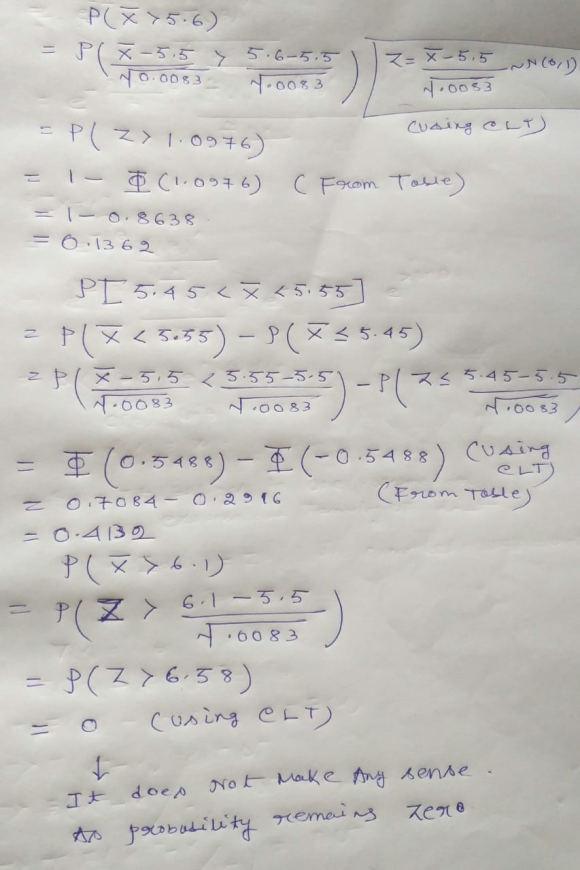 P(X̄ > 5.6)
= P( (X̄ - 5.5)/√0.0083 > (5.6-5.5)/√.0083 ) | Z = (X̄ - 5.5)/√.0083 ~ N(0,1)
(Using CLT)
= P( Z > 1.0976)
= 1 - Φ (1.0976) ( From Table)
= 1 - 0.8638
= 0.1362
P[ 5.45 < X̄ < 5.55 ]
= P( X̄ < 5.55) - P( X̄ ≤ 5.45)
= P( (X̄ - 5.5)/√.0083 < (5.55-5.5)/√.0083 ) - P( Z ≤ (5.45-5.5)/√.0083 )
= Φ (0.5488) - Φ (-0.5488) (Using CLT)
= 0.7084 - 0.2916 (From Table)
= 0.4132
P( X̄ > 6.1)
= P( Z > (6.1 - 5.5)/√.0083 )
= P( Z > 6.58)
= 0 (Using CLT)
↓
It does Not Make Any sense.
As probability remains Zero